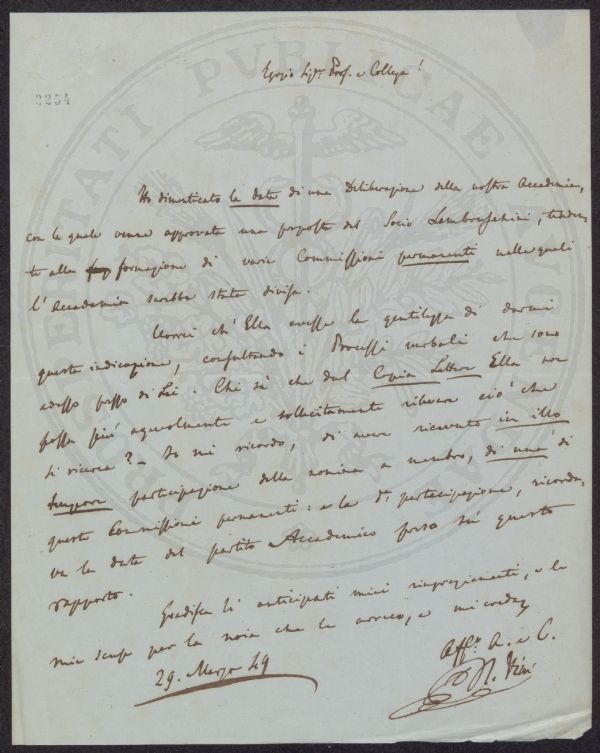 2254
PROSPERITATI PVBLICAE AVGENDAE
Egregio Sigr. Prof. e Collega!
Ho dimenticato la data di una Deliberazione della nostra Accademia,
con la quale venne approvata una proposta del Socio Lambruschini, tenden-
te alla formazione di varie Commissioni permanenti nelle quali
l'Accademia sarebbe stata divisa.
Vorrei ch'Ella avesse la gentilezza di darmi
questa indicazione, consultando i Processi verbali che sono
adesso presso di Lei. Chi sà che dal Copia Lettere Ella non
possa più agevolmente e sollecitamente rilevare ciò che
si ricerca? - Io mi ricordo, di avere ricevuto in illo
tempore participazione della nomina a membro, di una di
queste Commissioni permanenti: e la da. partecipazione, ricorda-
va la data del partito Accademico preso su questo
rapporto.
Gradisca li anticipati miei ringraziamenti, e le
mie scuse per la noia che le arreco, e mi creda
29. Marzo 49
Affo. A. e C.